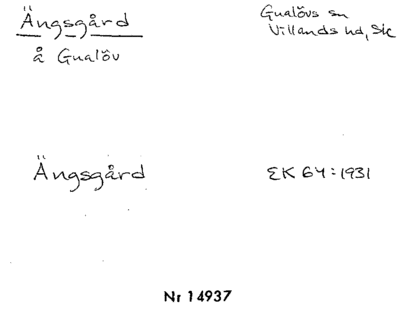 Ängsgård
å Gualöv
Gualövs sn
Villands hd, Sk
Ängsgård
EK 64:1931
Nr 14937